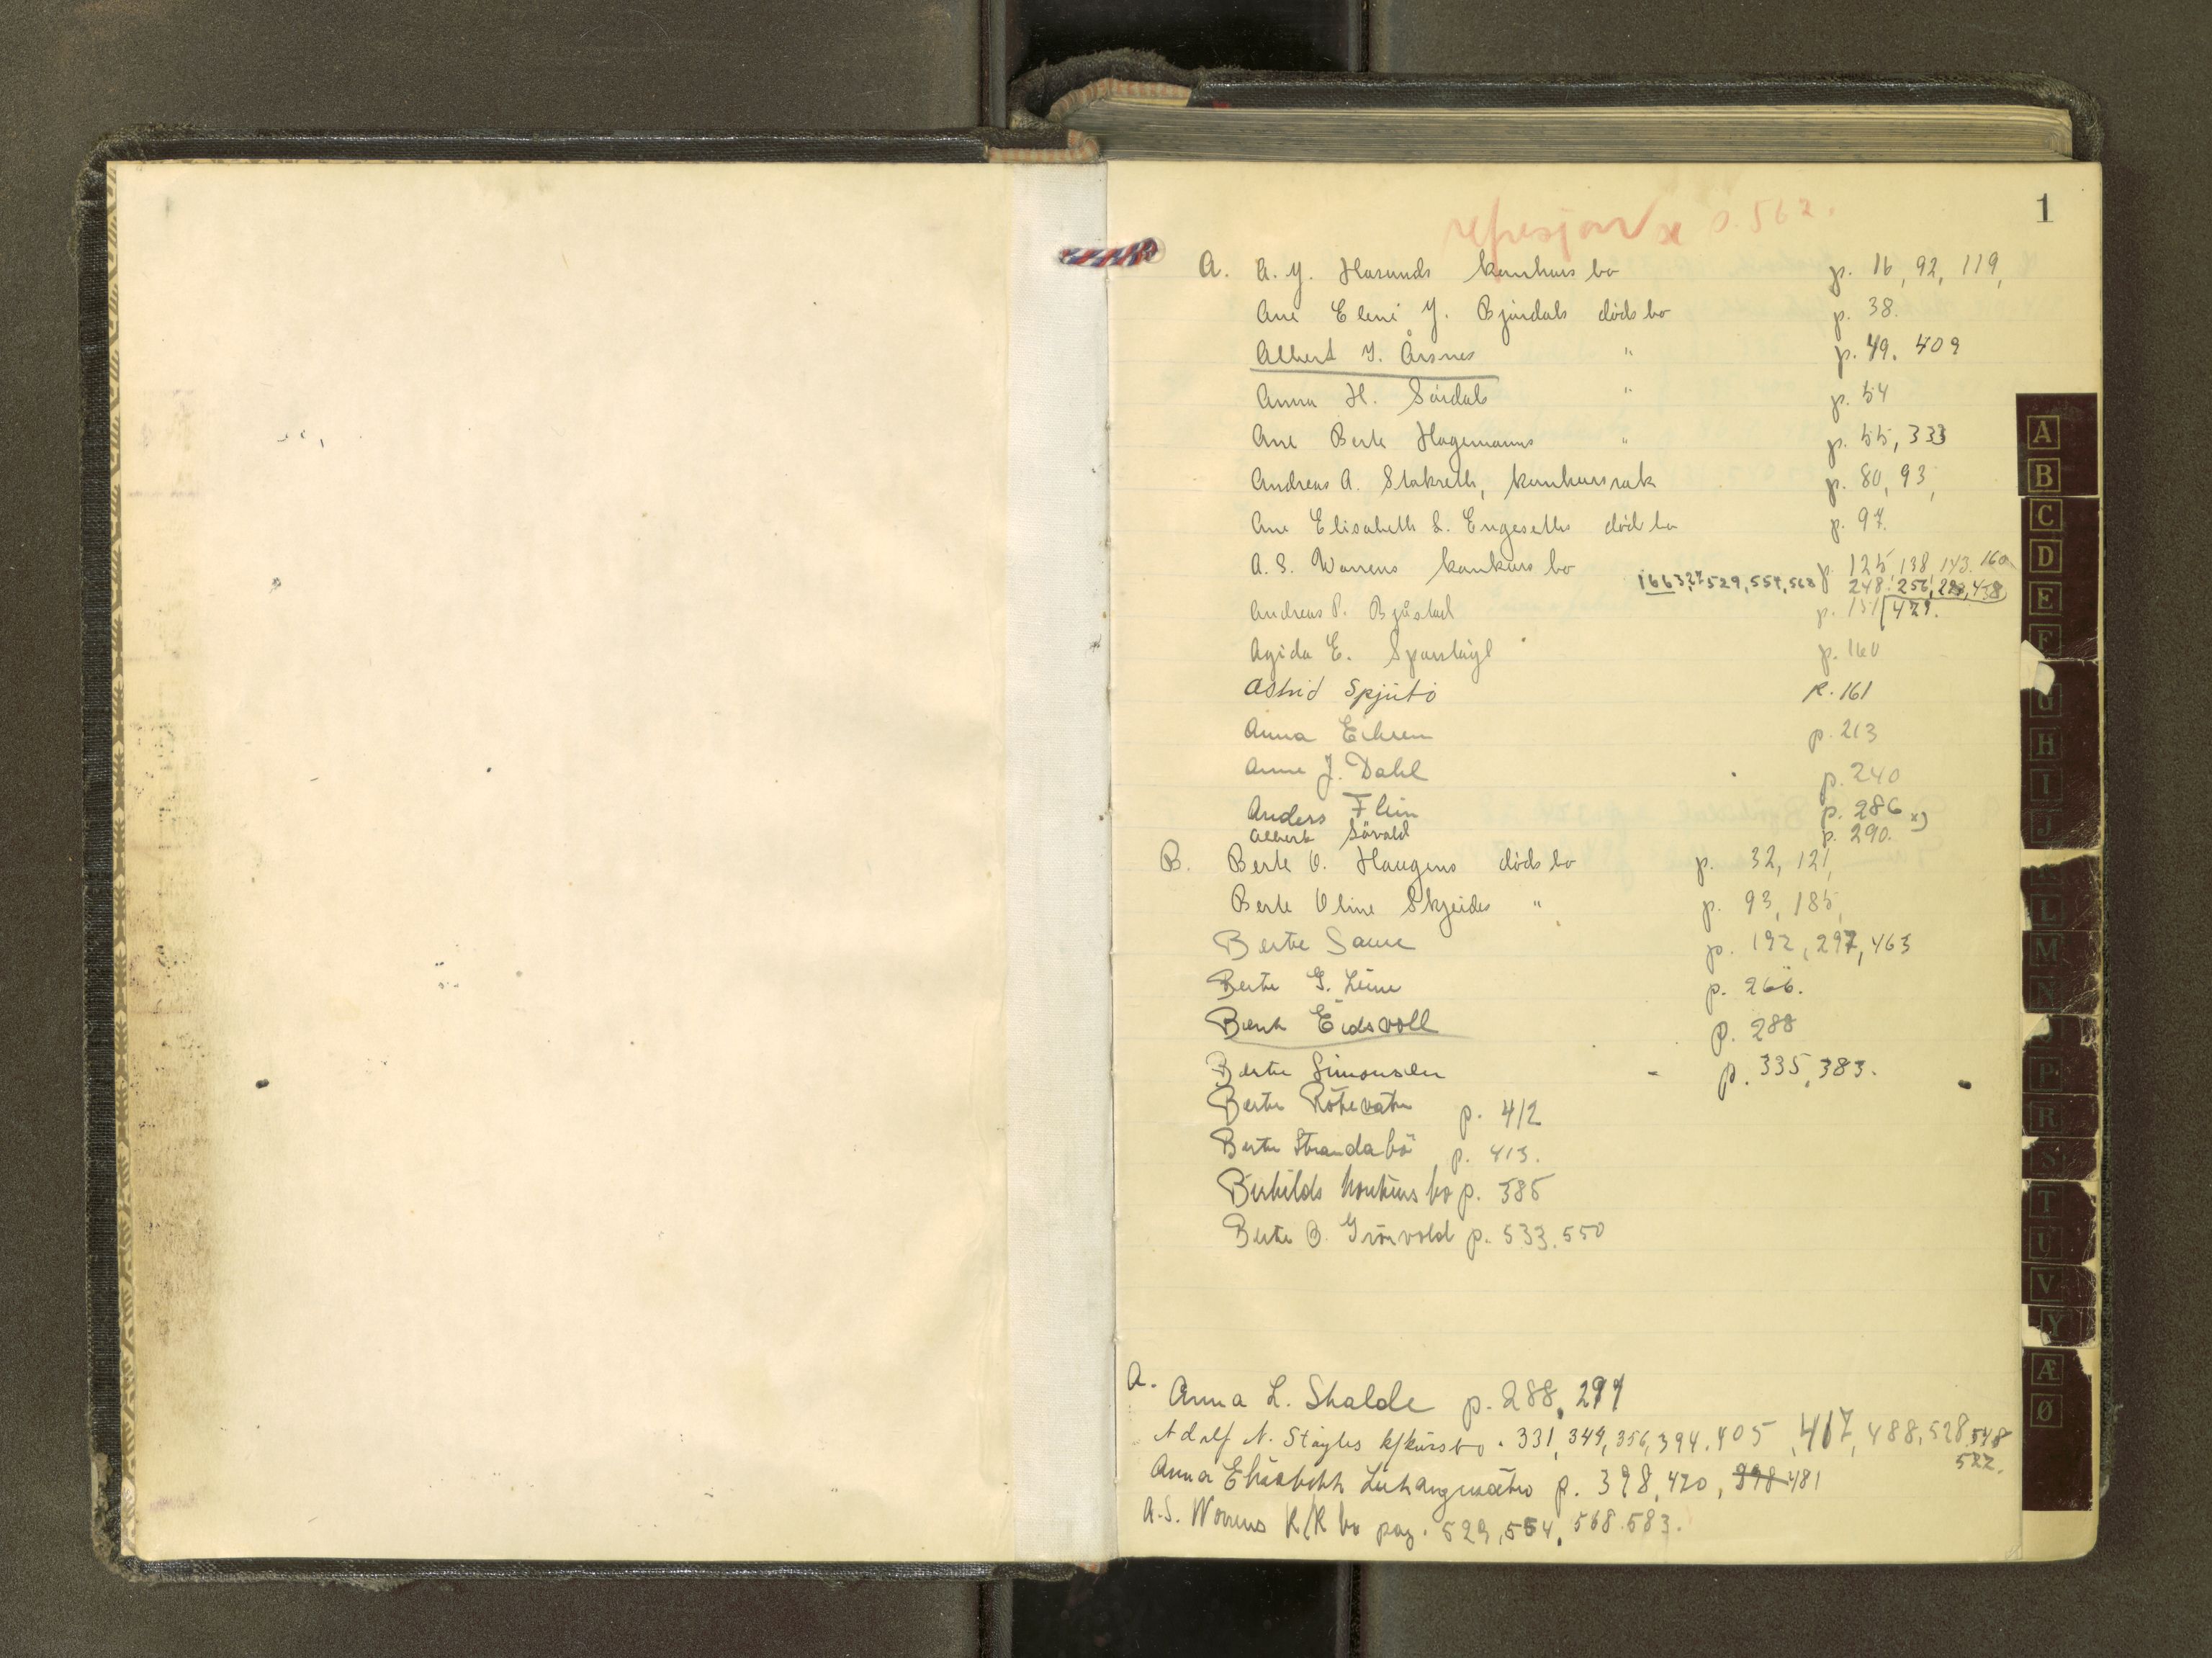 1
p. 562.
A. A. Y. Hasunds konkurs bo p. 16, 92, 119,
Ane Eleni Y. Bjørdals dødsbo p. 38.
Albert Y. Årsnes " p. 49. 409
Anna H. Sørdals " p. 54
Ane Berte Hagemanns " p. 55, 333
Andreas A. Stokseth, konkurssak p. 80, 93,
Ane Elisabeth L. Engeseths dødsbo p. 97.
A. S. Worrens konkurs bo p. 125, 138, 143. 160
166 327, 529, 554, 568 248. 256, 293, 458
Andreas P. Bjåstad p. 151 479.
Agida E. p. 160
Astrid Spjutø p. 161
Anna p. 213
Anne J. Dahl p. 240
Anders Flein p. 286 x)
Albert Søvold p. 290.
B. Berte O. Haugens dødsbo p. 32, 121,
Berte Oline Skjeides " p. 93, 185,
Berte Saure p. 192, 297, 463
Berte G. Leine p. 266.
Bernt Eidsvoll p. 288
Berte Simonsen p. 335, 383.
Berte Røtevatn p. 412
Berte Strandabø p. 413.
konkurs bo p. 385
Berte B. Grønvold p. 533. 550
A. Anna L. Skalde p. 288, 297
Adolf N. Støyles k/kursbo. 331, 349, 356, 394, 405, 417, 488, 528, 548
582.
Anna Elisabeth p. 398, 420, 398 481
A. S. Worrens K/K bo pag. 529, 554, 568. 583.
A
B
C
D
E
F
G
H
I
J
L
M
N
P
R
S
T
U
V
Y
Æ
Ø